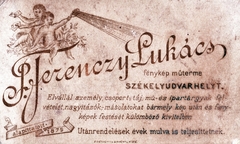 P. Ferenczy Lukács
fénykép műterme
SZÉKELYUDVARHELYT.
Elvállal személy, csoport, táj, mű- és ipartárgyak fel-
vételét, nagyitások, másolatokat bármely kép után és fény-
képek festését különböző kivitelben.
ALAPÍTTATOTT 1875
Utánrendelések évek mulva is teljesittetnek.